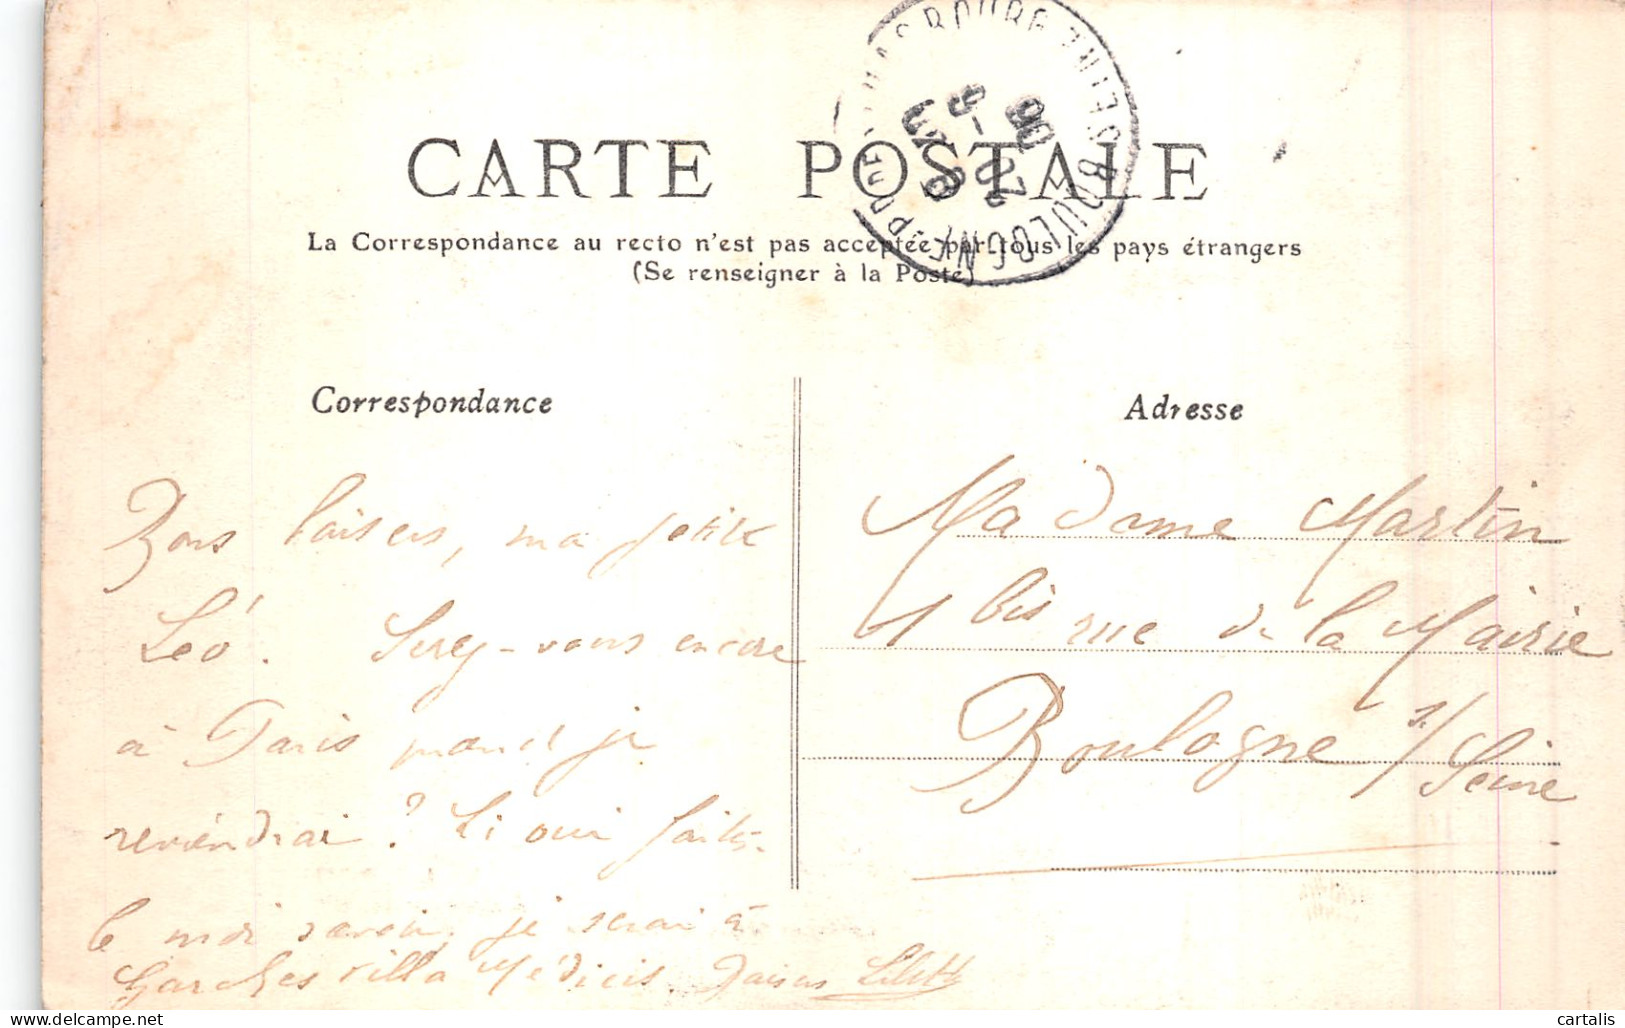 CARTE POSTALE
La Correspondance au recto n'est pas acceptée par tous les pays étrangers
(Se renseigner à la Poste)
Correspondance
Bons baisers, ma petite
Léo. Serez-vous encore
à Paris quand je
reviendrai ? Si oui faites-
le moi savoir, je serai à
Garches villa Médicis. Baisers Lilette
Adresse
Madame Martin
1 bis rue de la Mairie
Boulogne s/ Seine
BOULOGNE
cartalis